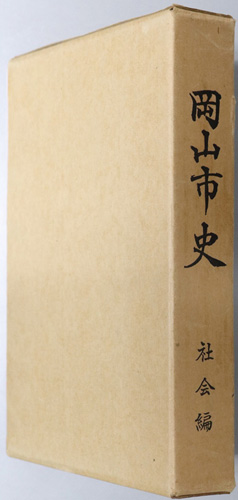 岡山市史
社会編